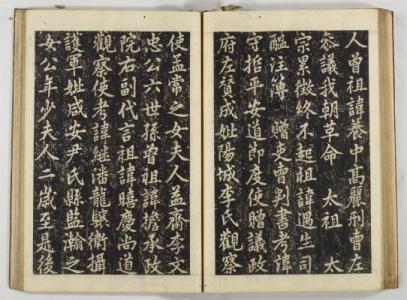 人曾祖諱養中髙麗刑曹左
叅議我朝革命 太祖 太
宗累徵終不起祖諱遇生司
醞注簿贈吏曹判書考諱
守招平安道節度使贈議政
府左賛成妣陽城李氏觀察
使孟常之女夫人益齋李文
忠公六世孫曽祖諱擔承政
院右副代言祖諱暿慶尚道
觀察使考諱継潘龍驤衛攝
護軍妣咸安尹氏縣監瀚之
女公年少夫人二歳至㝡後